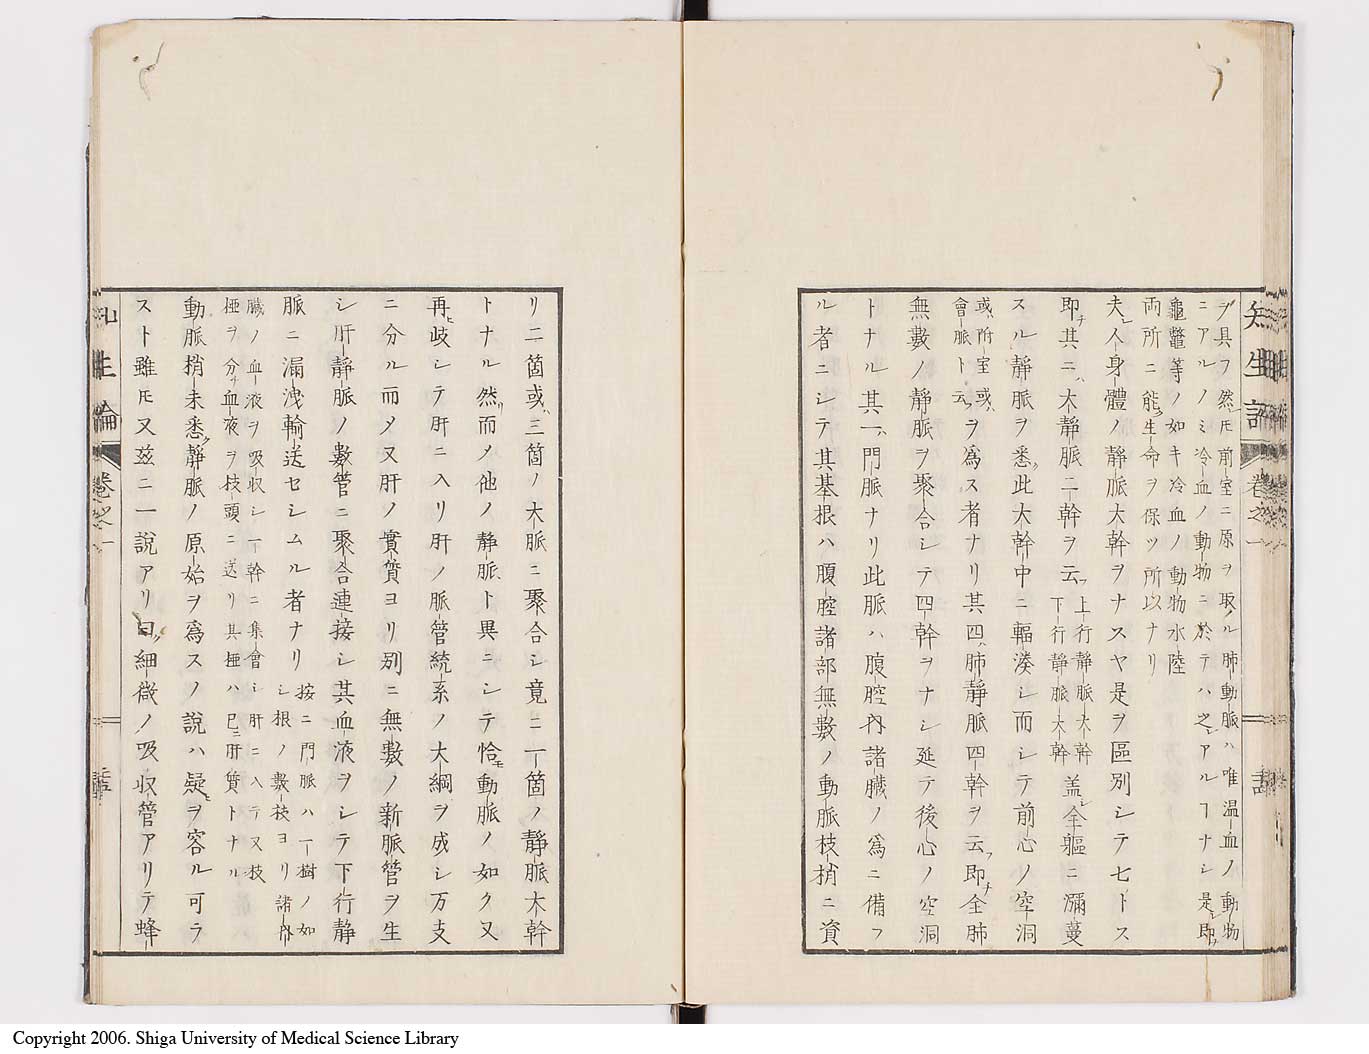 知生論
卷之一
ヲ具フ然𪜈前室ニ原ヲ取ル肺動脈ハ唯温血ノ動物
ニアルノミ冷血ノ動物ニ於テハ之アルヿナシ是即
龜鼈等ノ如キ冷血ノ動物水陸
両所ニ能生命ヲ保ツ所以ナリ
夫人身體ノ静脈大幹ヲナスヤ是ヲ區別シテ七トス
即其二ハ大静脈二幹ヲ云
上行静脈大幹
下行静脈大幹
盖全軀ニ瀰蔓
スル静脈ヲ悉此大幹中ニ輻湊シ而シテ前心ノ空洞
或附室或
會脈ト云
ヲ為ス者ナリ其四肺静脈四幹ヲ云即全肺
無數ノ静脈ヲ聚合シテ四幹ヲナシ延テ後心ノ空洞
トナル其一門脈ナリ此脈ハ腹腔内諸臓ノ為ニ備フ
ル者ニシテ其基根ハ腹腔諸部無數ノ動脈枝梢ニ資
リ二箇或三箇ノ大脈ニ聚合シ竟ニ一箇ノ静脈大幹
トナル然而メ他ノ静脈ト異ニシテ恰動脈ノ如ク又
再岐シテ肝ニ入リ肝ノ脈管統系ノ大綱ヲ成シ万支
ニ分ル而メ又肝ノ實質ヨリ別ニ無數ノ新脈管ヲ生
シ肝静脈ノ數管ニ聚合連接シ其血液ヲシテ下行静
脈ニ漏洩輸送セシムル者ナリ
按ニ門脈ハ一樹ノ如
シ根ノ數枝ヨリ諸内
臓ノ血液ヲ吸収シ一幹ニ集會シ肝ニ入テ又枝
極ヲ分血液ヲ枝頭ニ送リ其極ハ已肝質トナル
動脈梢未悉静脈ノ原始ヲ為スノ説ハ疑ヲ容ル可ラ
スト雖𪜈又茲ニ一説アリ曰細微ノ吸収管アリテ蜂
卷之一
Copyright 2006. Shiga University of Medical Science Library